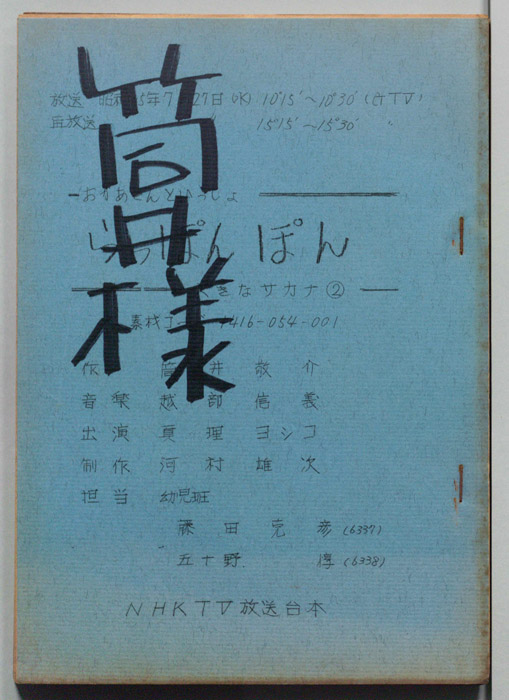 筒井様
放送 昭和 5年7 27日(水) 10°15′~10°30′(GTV)
再放送 〃 15°15′~15°30′ 〃
おかあさんといっしょ
ぽん ぽん
きなサカナ②
素材コード 1416-054-001
作 筒井敬介
音楽 越部信義
出演 真理ヨシコ
制作 河村雄次
担当 幼児班
藤田克彦(6337)
五十野 惇(6338)
NHKTV放送台本